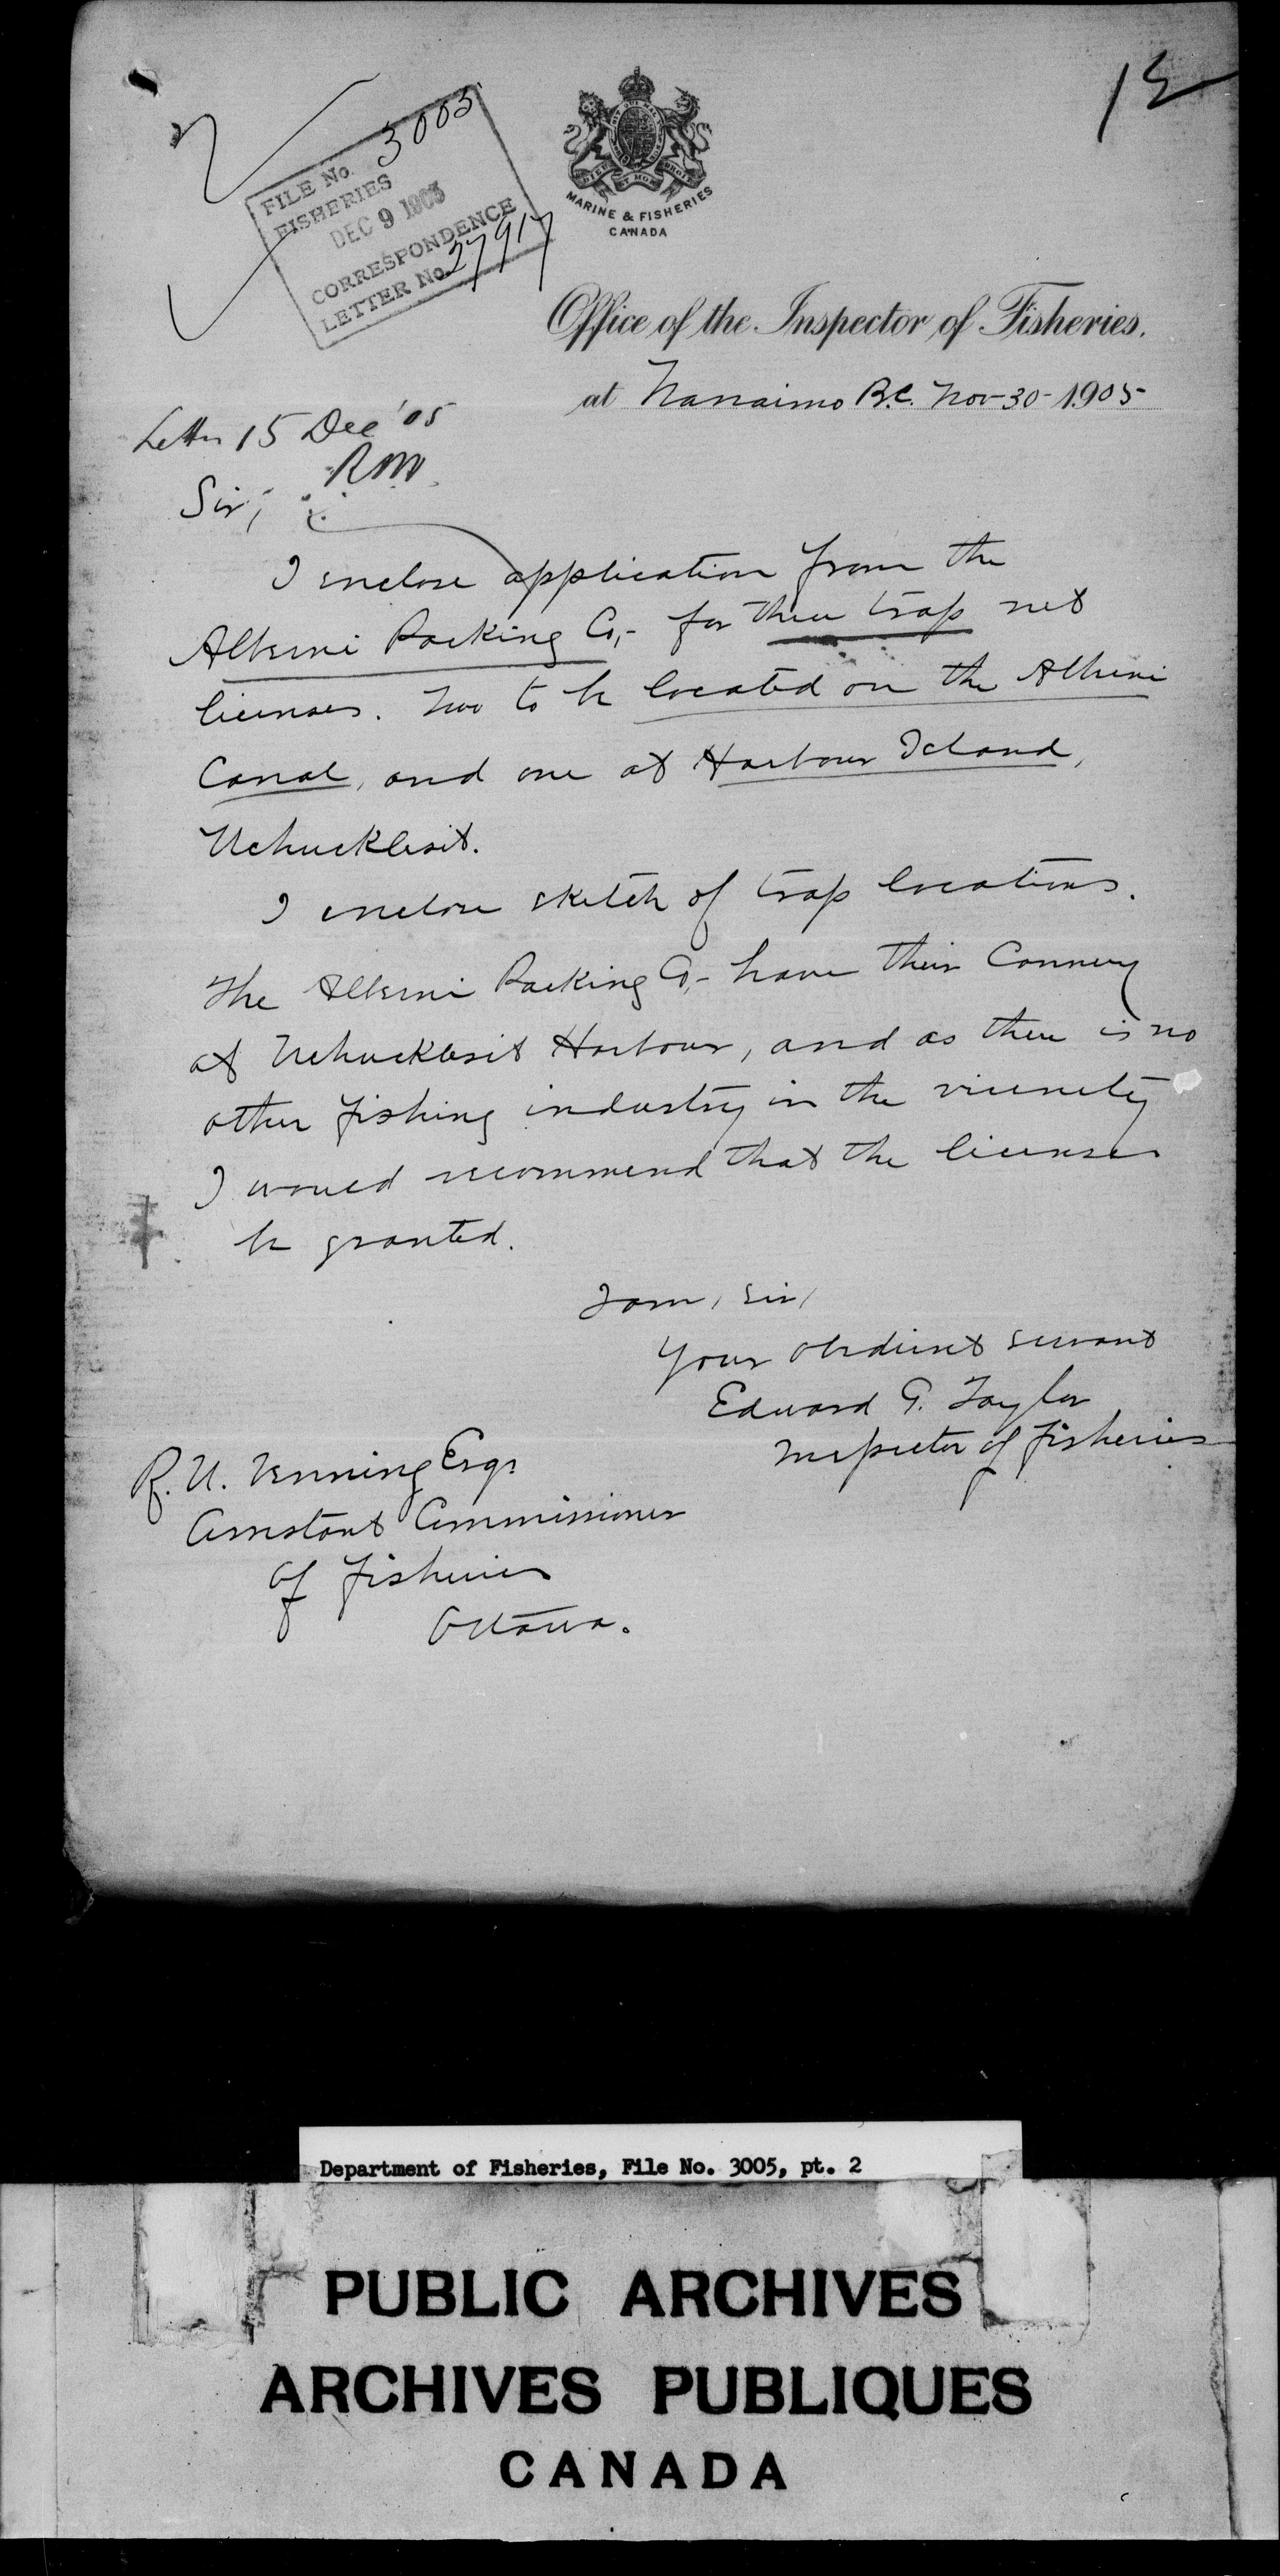 12
FILE No. 3005
FISHERIES
DEC 9 1905
CORRESPONDENCE
LETTER No. 27917
DIEU ET MON DROIT
MARINE & FISHERIES
CANADA
Office of the Inspector of Fisheries.
at Nanaimo B.C. Nov-30-1905
Letter 15 Dec '05
Sir;
I enclose application from the
Alberni Packing Co,- for three trap net
licenses. Two to be located on the Alberni
Canal, and one at Harbour Island,
Uchucklesit.
I enclose sketch of trap locations.
The Alberni Packing Co,- have their Cannery
at Uchucklesit Harbour, and as there is no
other fishing industry in the vicinity
I would recommend that the licenses
be granted.
I am, Sir,
Your obedient servant
Edward G. Taylor
Inspector of Fisheries
R. N. Venning Esqr
Assistant Commissioner
of Fisheries
Ottawa.
Department of Fisheries, File No. 3005, pt. 2
PUBLIC ARCHIVES
ARCHIVES PUBLIQUES
CANADA